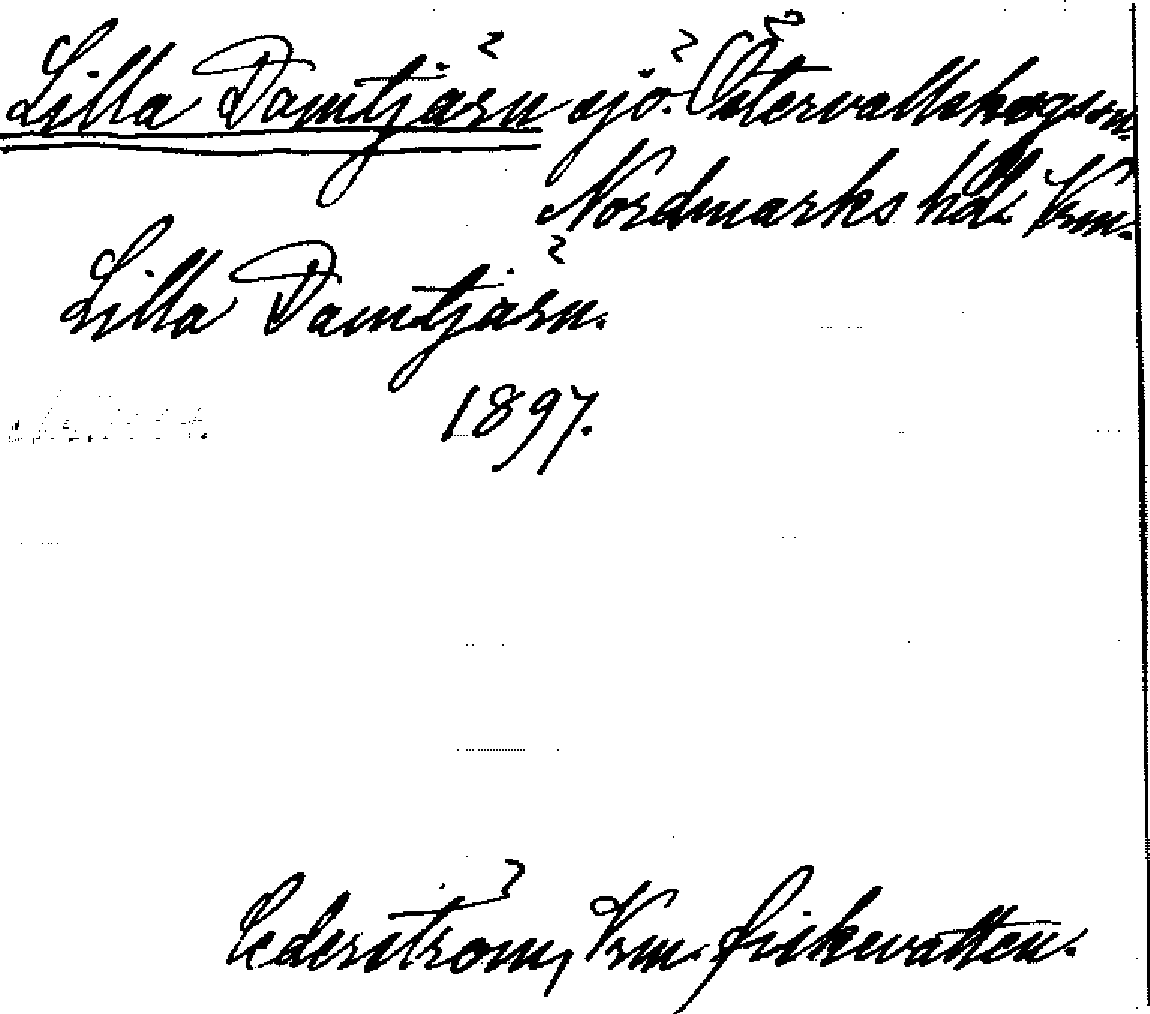 Lilla Damtjärn sjö. Östervallskogs sn.
Nordmarks hd. Vrm.
Lilla Damtjärn.
1897.
Cederström, Vrm. fiskevatten.